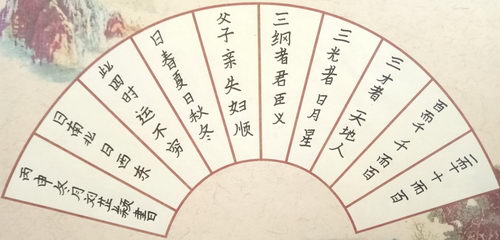 一而十十而百
百而千千而
三才者天地人
三光者日月星
三纲者君臣义
父子亲夫妇顺
曰春夏曰秋冬
此四时运不穷
曰南北曰西东
丙申冬月刘芷颖書